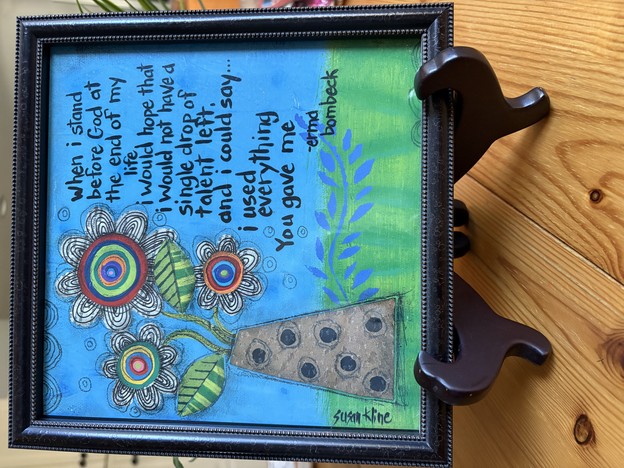 when i stand
before God at
the end of my
life
i would hope that
i would not have a
single drop of
talent left.
and i could say...
i used
everything
You gave me
erma
bombeck
susan kline